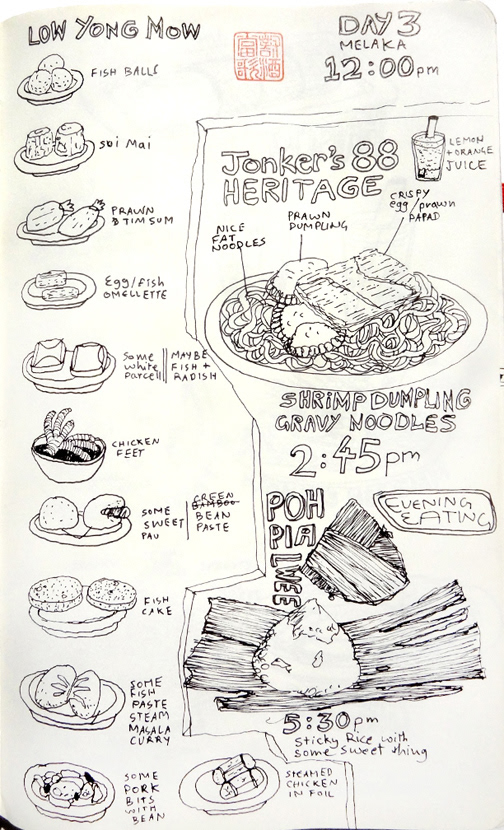 LOW YONG MOW
DAY 3
MELAKA
12:00pm
FISH BALLS
Soi Mai
PRAWN
DTIMSUM
Egg/FISH
OMELLETTE
Some
white
parcell
MAYBE
FISH +
RADISH
CHICKEN
FEET
SOME
SWEET
PAU
GREEN
BAMBOO
BEAN
PASTE
FISH
CAKE
SOME
FISH
PASTE
STEAM
MASALA
CURRY
SOME
PORK
BITS
WITH
BEAN
STEAMED
CHICKEN
IN FOIL
Jonker's 88
HERITAGE
LEMON
+ ORANGE
JUICE
NICE
FAT
NOODLES
PRAWN
DUMPLING
CRISPY
egg/prawn
PAPAD
SHRIMP DUMPLING
GRAVY NOODLES
2:45pm
EVENING
EATING
POH
PIA
LWEE
5:30pm
Sticky Rice with
some sweet thing